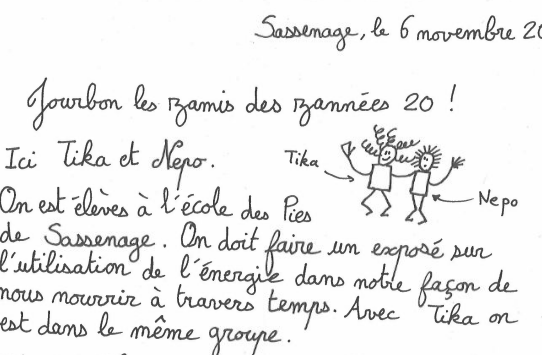 Sassenage, le 6 novembre 20
Jourbon les zamis des zannées 20 !
Ici Tika et Nepo.
Tika
Nepo
On est élèves à l'école des Pies
de Sassenage. On doit faire un exposé sur
l'utilisation de l'énergie dans notre façon de
nous nourrir à travers temps. Avec Tika on
est dans le même groupe.